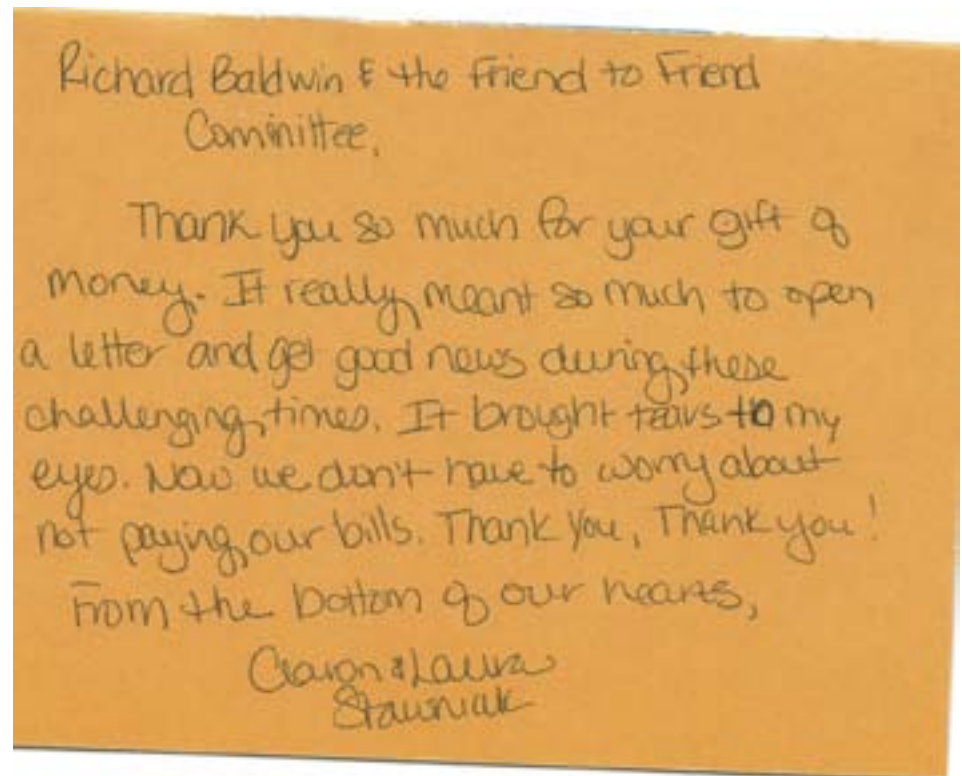 Richard Baldwin & the Friend to Friend
Committee,
Thank you so much for your gift of
money. It really meant so much to open
a letter and get good news during these
challenging times. It brought tears to my
eyes. Now we don't have to worry about
not paying our bills. Thank you, Thank you!
From the bottom of our hearts,
& Laura